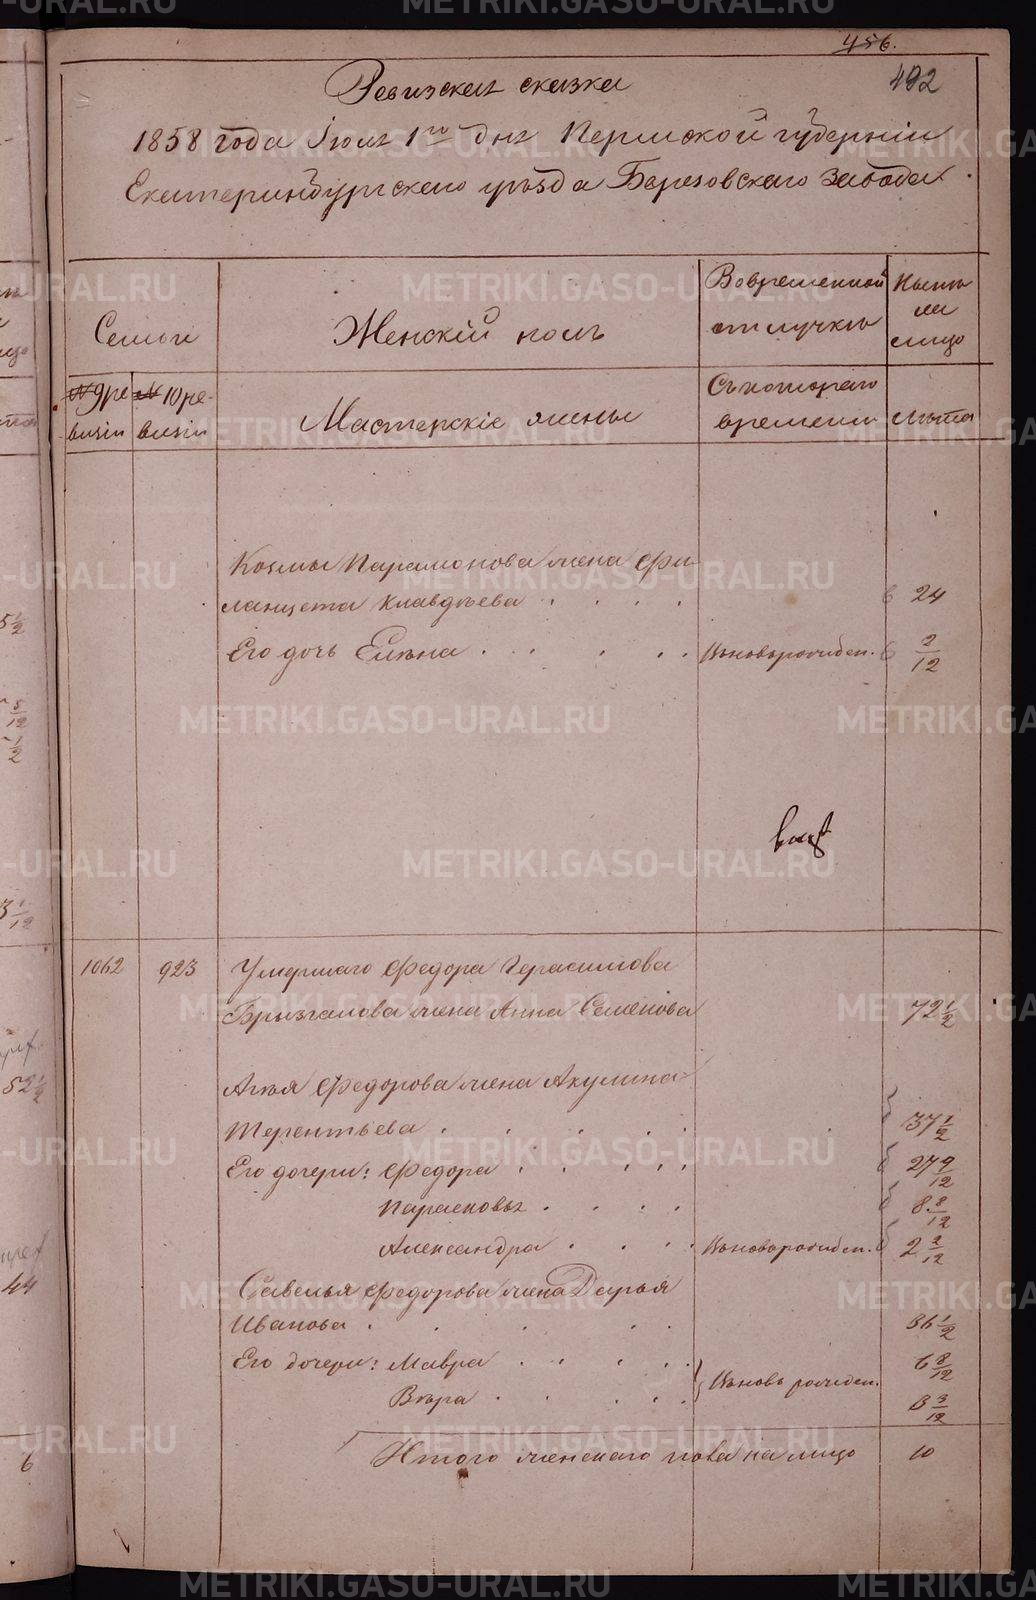 456.
492
Ревизская сказка
1858 года Июня 1го дня Пермской губернiи
Екатеринбургскаго уѣзда Березовскаго завода.
Семьи
Женскiй полъ
Во временной
отлучкѣ
Нынѣ
на
лицо
№ 9 ре-
визiи
№ 10 ре-
визiи
Мастерскiе жены
Съ котораго
времени
лѣта
Козмы Парамонова жена Фи-
ланцета Клавдѣева 24
Его дочь Елена вновьрожден. 2/12
1062 923 Умершаго Федора Герасимова
Брызгалова жена Анна Семенова 72 1/2
Федорова жена Акулина
Терентьева 37 1/2
Его дочери: Федора 27 9/12
Парасковья 8 8/12
Александра вновьрожден. 2 2/12
Савелья Федорова жена Дарья
Иванова 36 1/2
Его дочери: Мавра 6 8/12
Вѣра вновь рожден. 3 3/12
Итого женскаго пола на лицо 10
METRIKI.GASO-URAL.RU